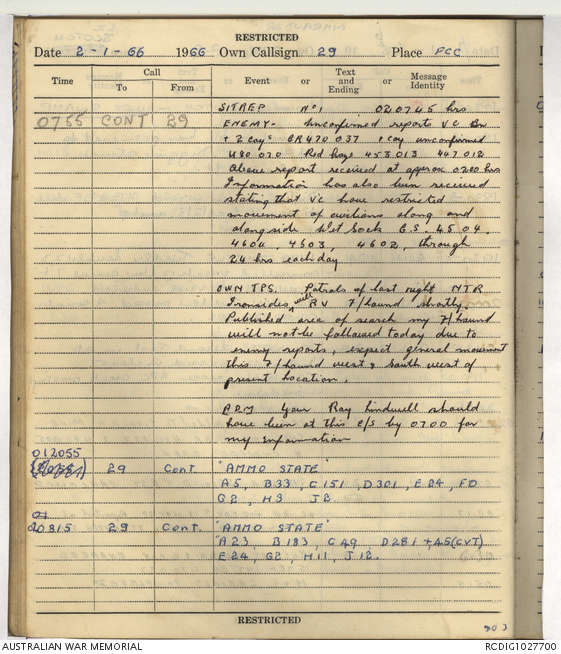 RESTRICTED
Date 2-1-66 1966 Own Callsign 29 Place PCC
Time Call To From Event or Text and Ending or Message Identity
SITREP No 1 020745 hrs
0755 CONT 29 ENEMY- Unconfirmed reports VC Bn
+ 2 coys GR 470 037 1 coy unconfirmed
480 020 Red haze 453 013 447 012
Above report received at approx 0200 hrs
Information has also been received
stating that VC have restricted
movement of civilians along and
alongside Wet Sock G.S. 4504,
4604, 4503, 4602, through
24 hrs each day
OWN TPS. Patrols of last night NTR
Ironsides will RV 7/hound shortly.
Published area of search my 7/hound
will not be followed today due to
enemy reports, expect general movement
this 7/hound west & south west of
present location.
ADM Your Ray Lindwell should
have been at this c/s by 0700 for
my information
012055
29 Cont. "AMMO STATE"
A5, B33, C151, D301, E24, FD
G2, H3 J2
01
20815 29 Cont. "AMMO STATE"
A23, B183, C49, D281 + 45 (CVT)
E24, G2, H11, J12.
RESTRICTED
AUSTRALIAN WAR MEMORIAL
RCDIG1027700